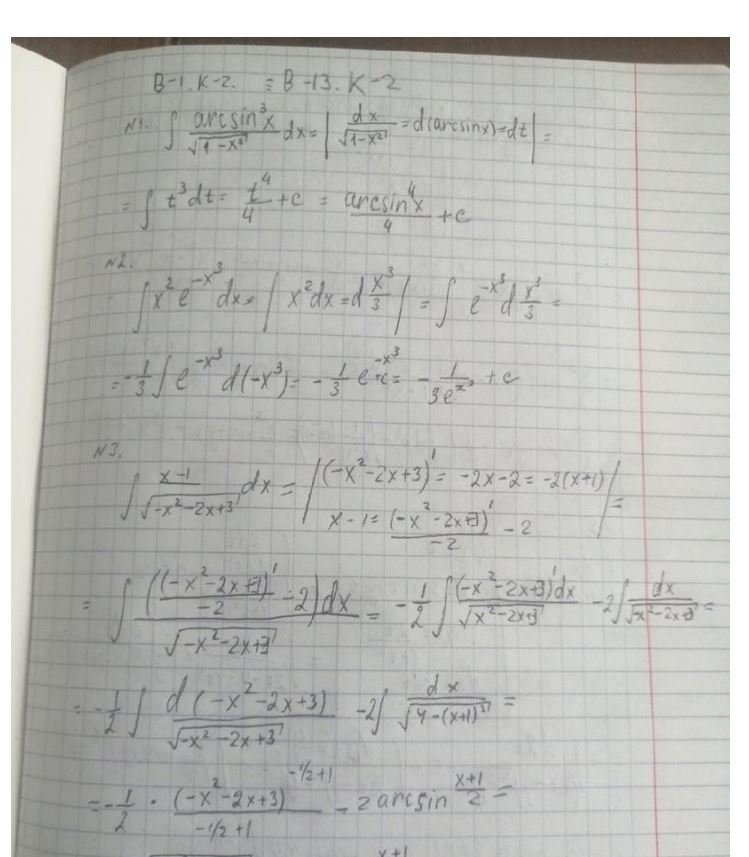 B-1. K-2. = B-13. K-2
N1. ∫ arcsin³x / √(1-x²) dx = | dx / √(1-x²) = d(arcsinx) = dt | =
= ∫ t³dt = t⁴/4 + c = arcsin⁴x / 4 + c
N2.
∫ x² e^(-x³) dx = | x²dx = d x³/3 | = ∫ e^(-x³) d x³/3 =
= -1/3 ∫ e^(-x³) d(-x³) = -1/3 e^(-x³) + c = - 1/(3e^(x³)) + c
N3.
∫ (x-1) / √(-x²-2x+3) dx = | (-x²-2x+3)' = -2x-2 = -2(x+1)
x-1 = (-x²-2x+3)' / -2 - 2 | =
= ∫ ((-x²-2x+3)' / -2 - 2) dx / √(-x²-2x+3) = -1/2 ∫ (-x²-2x+3)'dx / √(-x²-2x+3) - 2∫ dx / √(-x²-2x+3) =
= -1/2 ∫ d(-x²-2x+3) / √(-x²-2x+3) - 2∫ dx / √(4-(x+1)²) =
= -1/2 · (-x²-2x+3)^(-1/2+1) / (-1/2+1) - 2 arcsin (x+1)/2 =
x+1